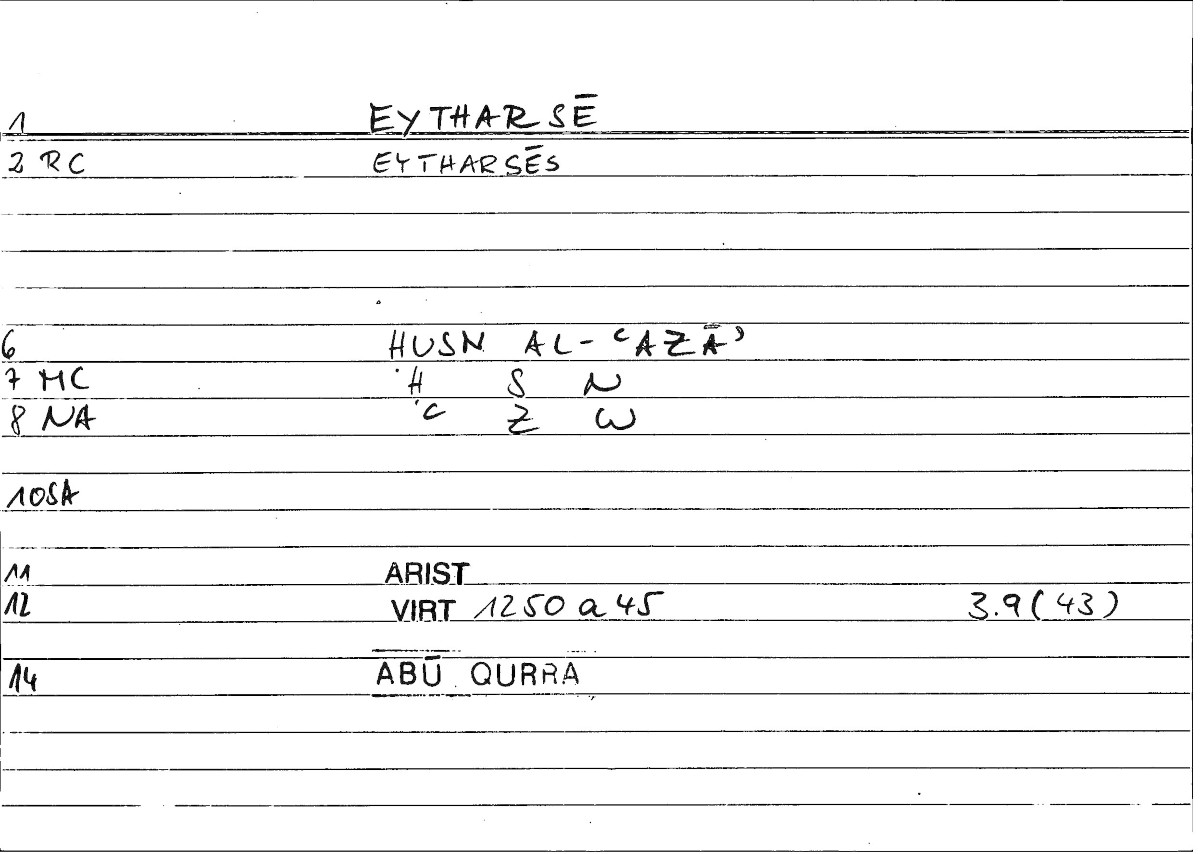 1 EYTHARSĒ
2 RC EYTHARSĒS
6 HUSN AL-ʿAZĀʾ
7 MC ḤSN
8 NA ʿZW
10SA
11 ARIST
12 VIRT 1250 a 45 3.9(43)
14 ABŪ QURRA